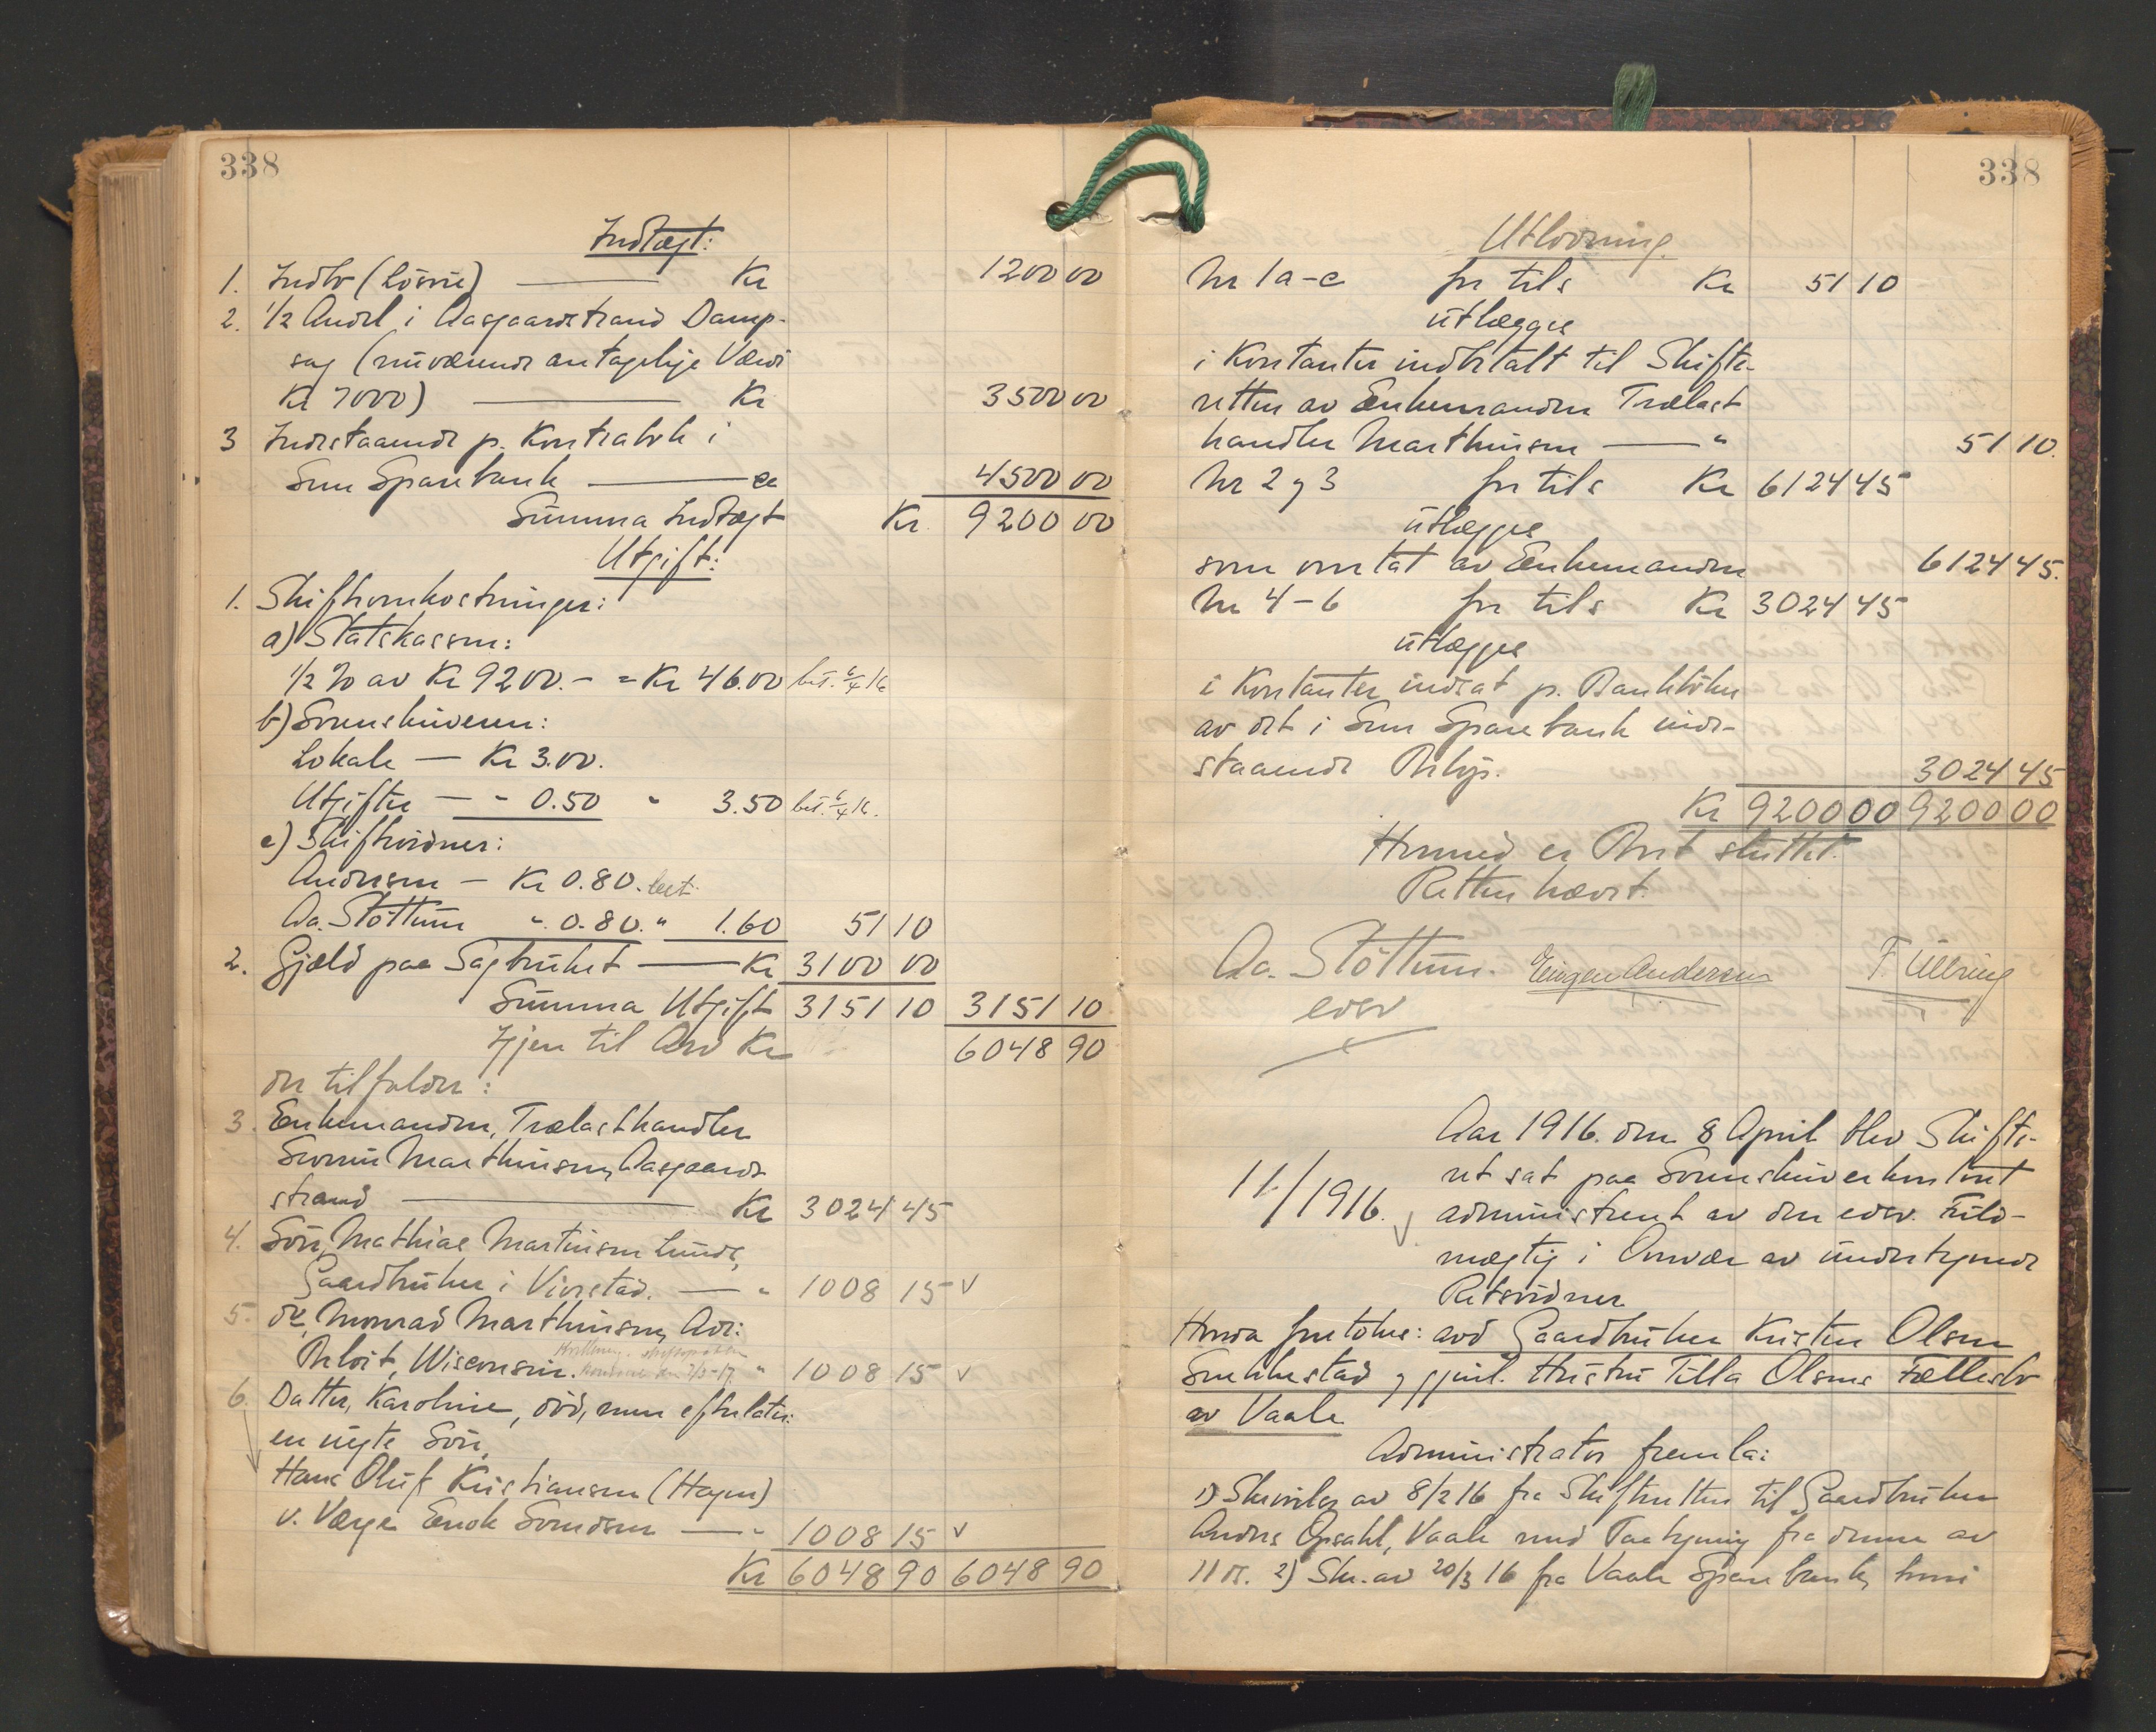 338
Indtægt:
1. Indbo (Løsøre) — Kr 1200 00
2. 1/2 Andel i Aasgaardstrand Damp-
sag (nuværende antagelige Værdi
Kr 7000) — Kr 3500 00
3 Indestaaende p. Kontrabok i
Sem Sparebank — " 4500 00
Summa Indtægt Kr. 9200 00
Utgift:
1. Skifteomkostninger:
a) Statskassen:
1/2 % av Kr 9200.- = Kr 46.00 bet. 6/4 16
b) Sorenskriveren:
Lokale — Kr 3.00.
Utgifter — " 0.50 " 3.50 bet. 6/4 16.
c) Skiftevidner:
Andersen — Kr 0.80. bet.
Aa. Støttum " 0.80. " 1.60 51 10
2. Gjæld paa Sagbruket — Kr 3100 00
Summa Utgift 3151 10 3151 10
Igjen til Arv Kr 6048 90
der tilfalder:
3. Enkemanden, Trælasthandler
Severin Marthinsen, Aasgaard-
strand — Kr 3024 45
4. Søn, Mathias Martinsen Lunde,
Gaardbruker i Vivestad. — " 1008 15 v
5. do, Monrad Marthinsen, Adr:
Beloit, Wisconsin. " 1008 15 v
6. Datter, Karoline, død, men efterlater
en uegte Søn,
Hans Oluf Kristiansen (Hagen)
v. Værge Enok Svendsen — " 1008 15 v
Kr 6048 90 6048 90
338
Utlodning.
Nr 1 a-c for tils Kr 51 10
utlægges
i Kontanter indbetalt til Skifte-
retten av Enkemanden Trælast
handler Marthinsen — " 51 10.
Nr 2 og 3 for tils Kr 6124 45
utlægges
som overtat av Enkemanden 6124 45.
Nr 4-6 for tils Kr 3024 45
utlægges
i Kontanter indsat p. Bankbøker
av det i Sem Sparebank inde-
staaende Beløp. 3024 45
Kr 9200 00 9200 00
Hermed er Boet sluttet.
Retten hævet.
Aa. Støttum. Eugen Andersen F. Ullring
edsv
11/1916. v
Aar 1916. den 8 April blev Skifte-
ret sat paa Sorenskriverkontoret
administreret av den edsv. Fuld-
mægtig i Overvær av undertegnede
Retsvidner
Hvorda foretokes: avd Gaardbruker Kristen Olsen
Smekkestad og gjenl. Hustru Tilla Olsens Fællesbo
av Vaale
Administrator fremla:
1) Skrivelse av 8/2 16 fra Skifteretten til Gaardbruker
Anders Opsahl, Vaale med Paategning fra denne av
11 ds. 2) Skr. av 20/3 16 fra Vaale Sparebank, hvori